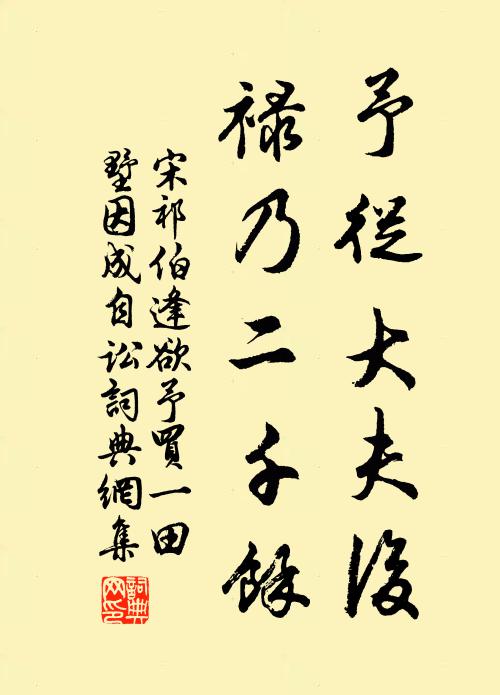 予從大夫後
祿乃二千餘
宋祁伯逢欲予買一田
墅因成自訟詞典網集
詞典
网印